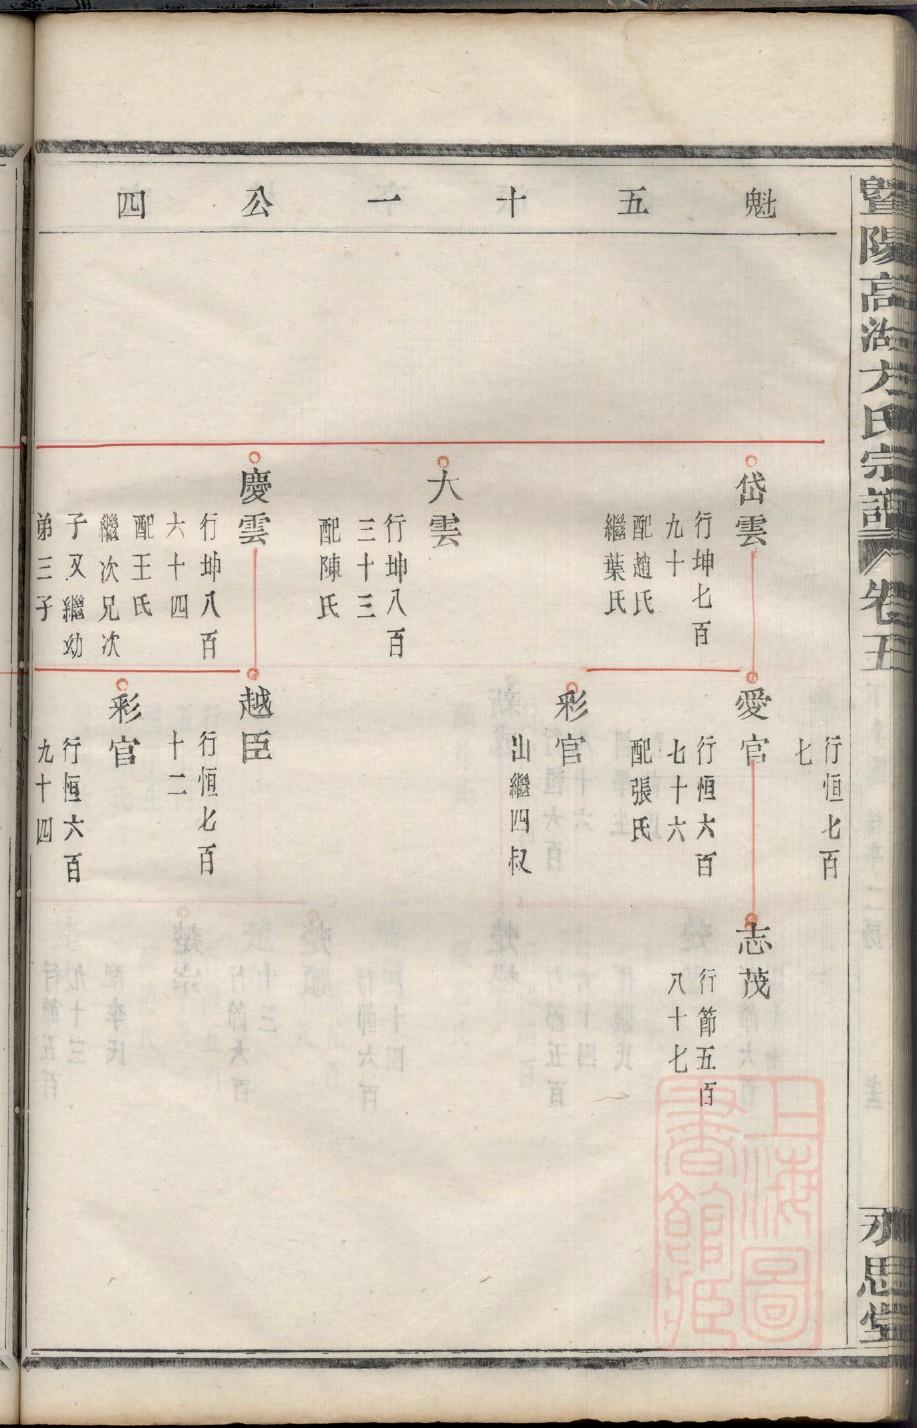 暨陽高湖方氏宗譜 卷五
永思堂
魁五十一公四
行恒七百
七
岱雲
行坤七百
九十
配趙氏
繼葉氏
大雲
行坤八百
三十三
配陳氏
慶雲
行坤八百
六十四
配王氏
繼次兄次
子又繼幼
弟三子
愛官
行恒六百
七十六
配張氏
彩官
出繼四叔
越臣
行恒七百
十二
彩官
行恒六百
九十四
志茂
行節五百
八十七
上海圖書館藏